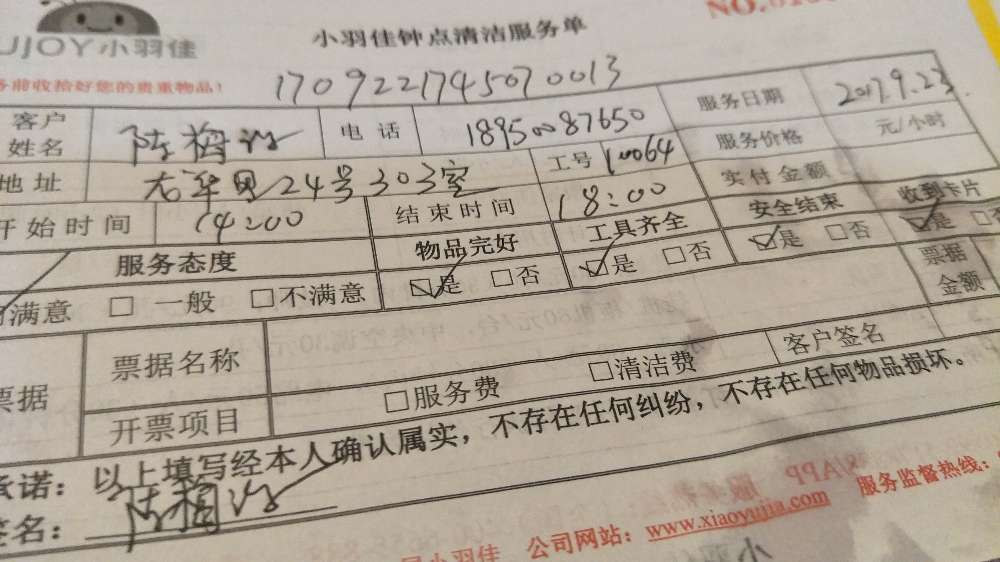 UJOY小羽佳
小羽佳钟点清洁服务单
NO.
务前收拾好您的贵重物品!
1709221745070013
客户姓名 陈梅 电话 18950087650 服务日期 2017.9.23
地址 24号303室 工号 10064 服务价格 元/小时
实付金额
开始时间 14:00 结束时间 18:00
服务态度 物品完好 工具齐全 安全结束 收到卡片
满意 □ 一般 □不满意 ☑是 □否 ☑是 □否 ☑是 □否 ☑是
票据 票据名称 票据金额
开票项目 □服务费 □清洁费 客户签名
承诺：以上填写经本人确认属实，不存在任何纠纷，不存在任何物品损坏。
签名：陈梅
小羽佳 公司网站：www.xiaoyujia.com 服务监督热线：